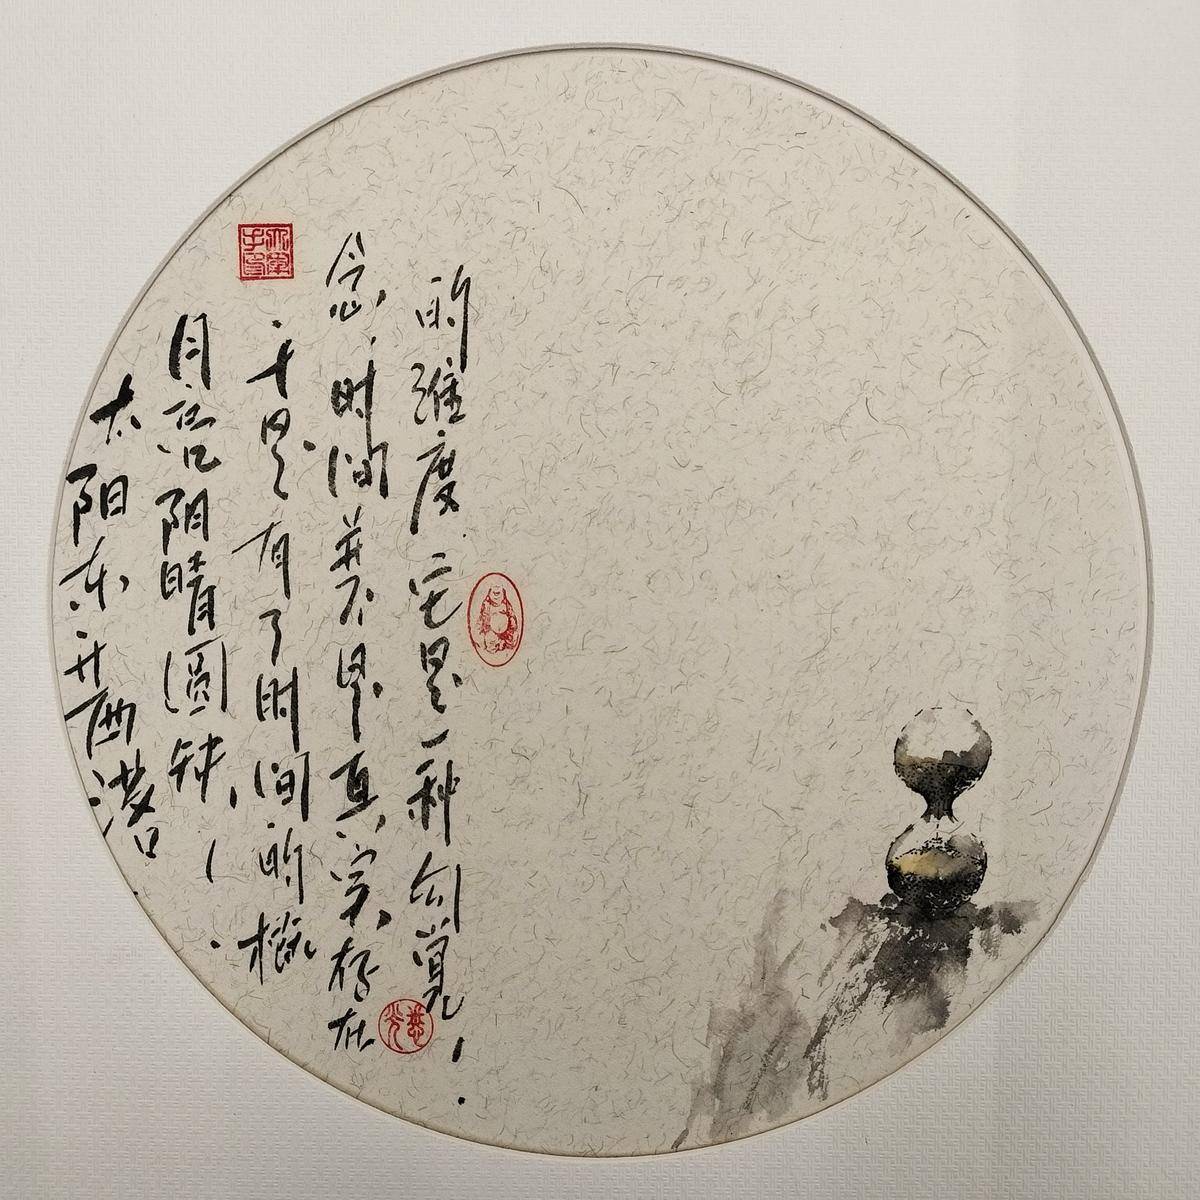 太阳东升西落
月亮阴晴圆缺,!
于是有了时间的概
念,时间并不是真实存在
的维度.它是一种幻觉!